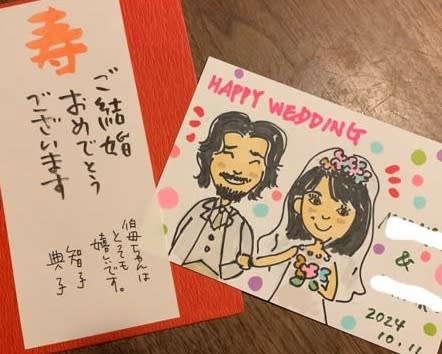 寿
ご結婚
おめでとう
ございます
伯母ちゃんは
とっても
嬉しいです。
智子
典子
HAPPY WEDDING
&
2024
10.11